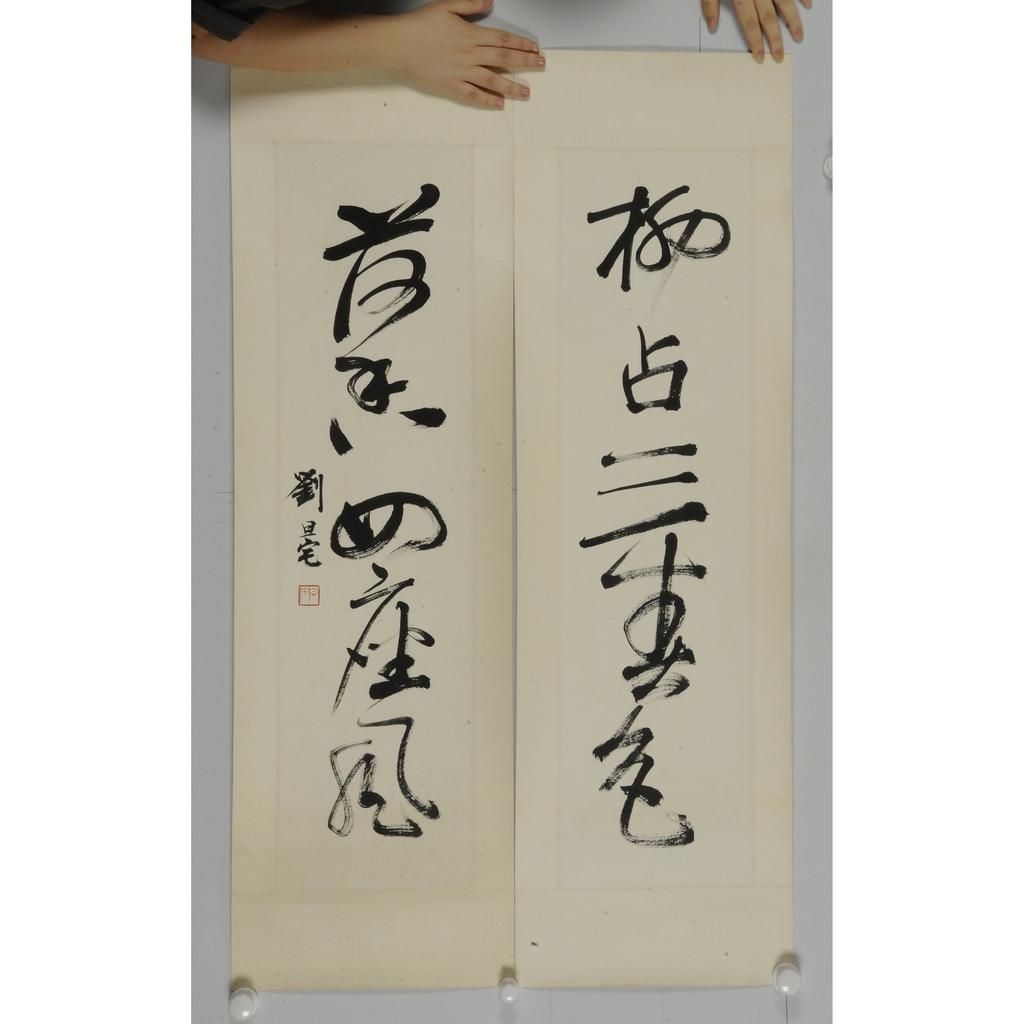 柳占三春色
荷香四座風
劉旦宅